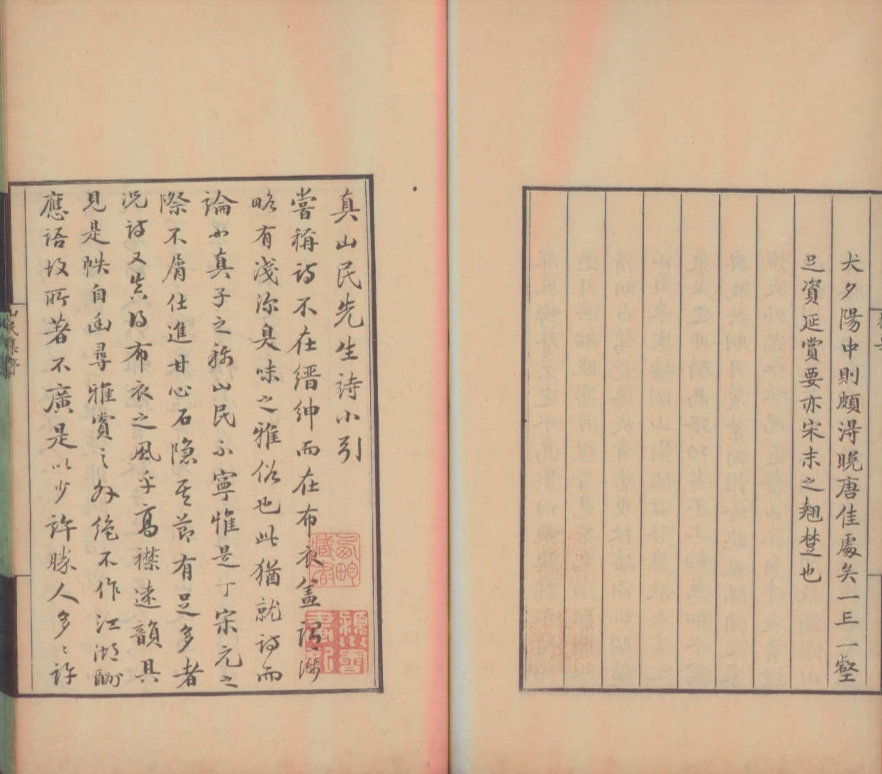 犬夕陽中則頗得晚唐佳處矣一丘一壑
足資延賞要亦宋末之翹楚也
真山民先生詩小引
嘗稱詩不在縉紳而在布衣蓋謂涉
略有淺深臭味之雅俗也此猶就詩而
論也真子之称山民不寧惟是丁宋元之
際不屑仕進甘心石隐其節有足多者
况詩又真得布衣之風乎高襟遠韻具
見是帙自幽尋雅賞之外絶不作江湖酬
應語故所著不廣是以少許勝人多〻許